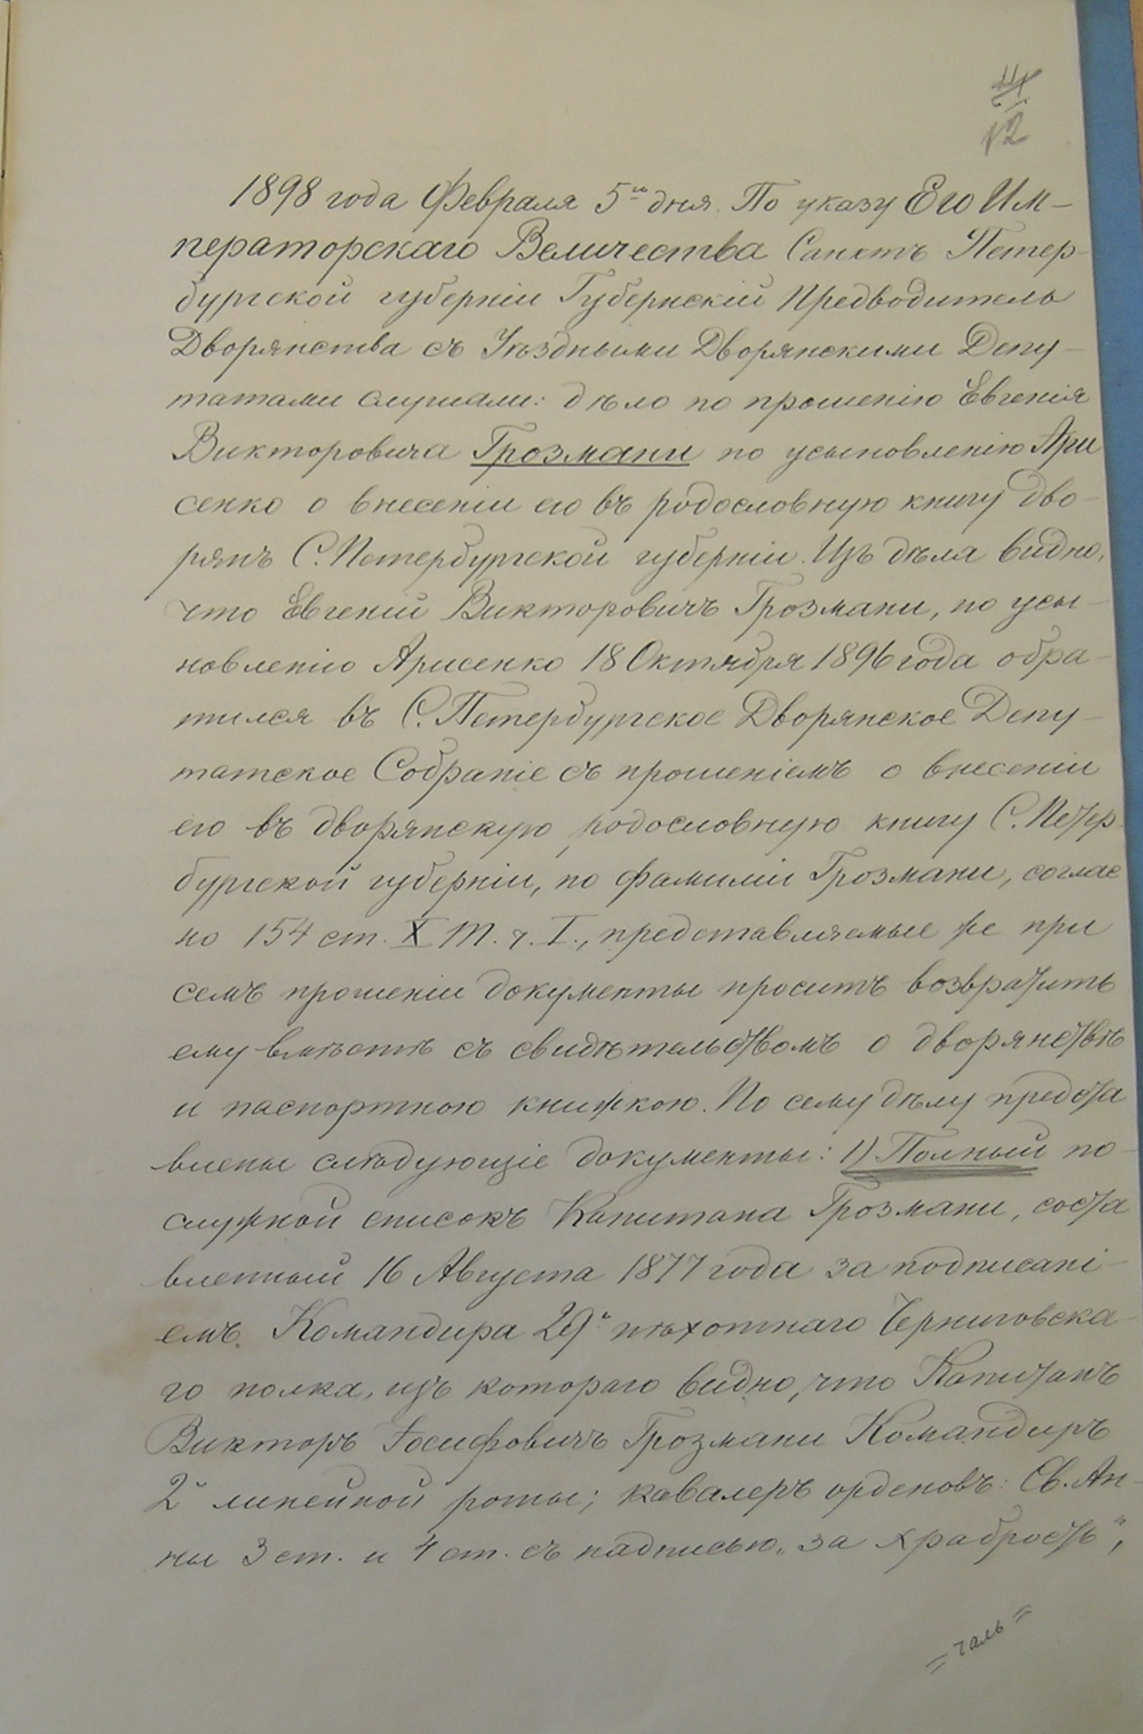 12
1898 года Февраля 5го дня. По указу Его Им-
ператорскаго Величества Санктъ Петер-
бургской губерніи Губернскій Предводитель
Дворянства съ Уѣздными Дворянскими Депу-
татами слушали: дѣло по прошенію Евгенія
Викторовича Грозмани по усыновленію Ари
сенко о внесеніи его въ родословную книгу дво-
рянъ С. Петербургской губерніи. Изъ дѣла видно,
что Евгеній Викторовичъ Грозмани, по усы-
новленію Арисенко 18 Октября 1896 года обра-
тился въ С. Петербургское Дворянское Депу-
татское Собраніе съ прошеніемъ о внесеніи
его въ дворянскую родословную книгу С. Петер
бургской губерніи, по фамиліи Грозмани, соглас
но 154 ст. X т. ч. I., представляемые же при
семъ прошеніи документы проситъ возвратить
ему вмѣстѣ съ свидѣтельствомъ о дворянствѣ
и паспортною книжкою. По сему дѣлу предста
влены слѣдующіе документы: 1) Полный по-
служной списокъ Капитана Грозмани, соста
вленный 16 Августа 1877 года за подписані-
емъ Командира 29го пѣхотнаго Черниговска-
го полка, изъ котораго видно, что Капитанъ
Викторъ Іосифовичъ Грозмани Командиръ
2й линейной роты; кавалеръ орденовъ: Св. Ан-
ны 3 ст. и 4 ст. съ надписью „за храбрость",